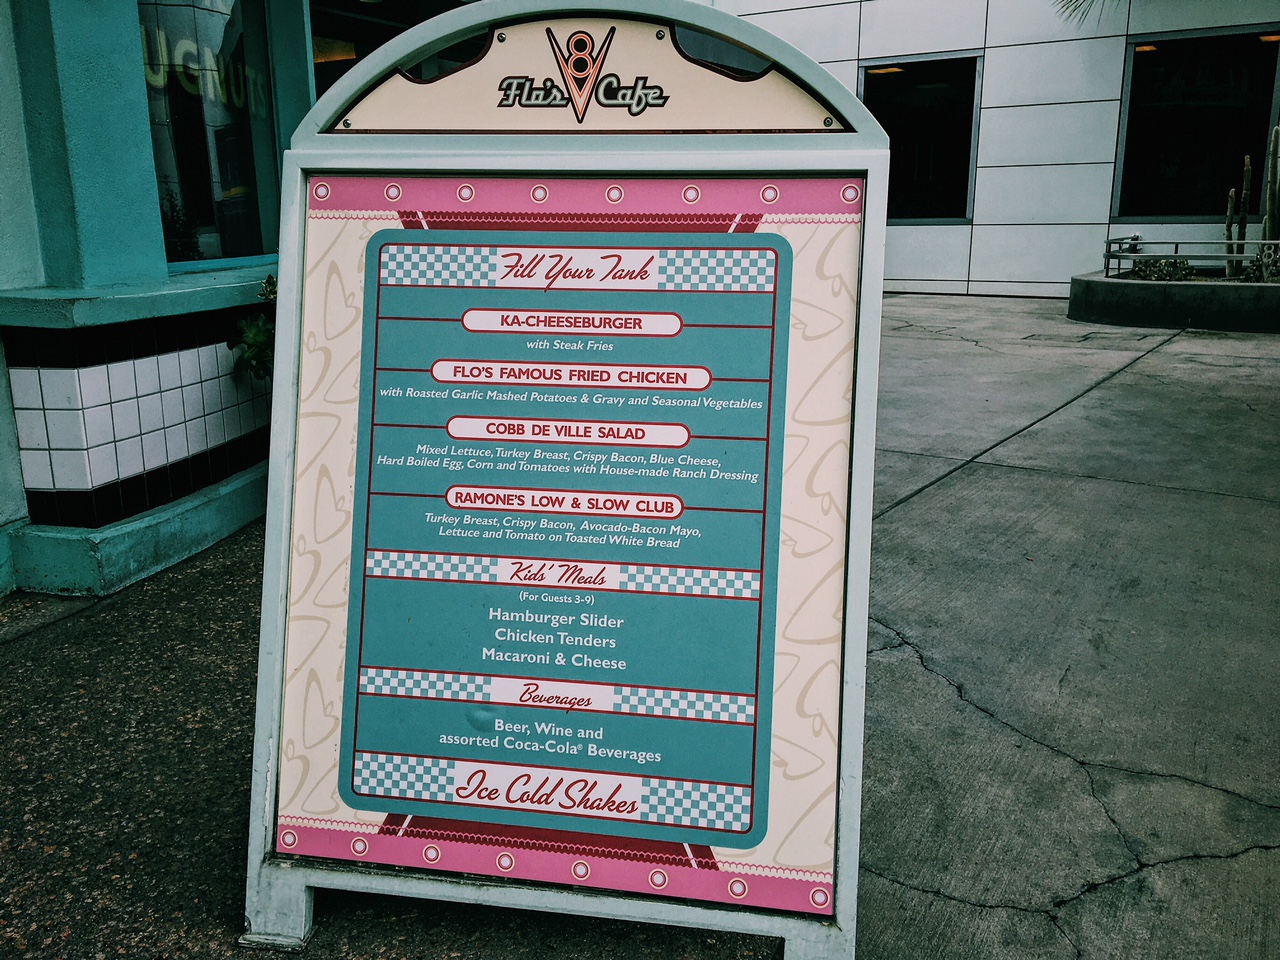 UGNUTS
Flo's V8 Cafe
Fill Your Tank
KA-CHEESEBURGER
with Steak Fries
FLO'S FAMOUS FRIED CHICKEN
with Roasted Garlic Mashed Potatoes & Gravy and Seasonal Vegetables
COBB DE VILLE SALAD
Mixed Lettuce, Turkey Breast, Crispy Bacon, Blue Cheese,
Hard Boiled Egg, Corn and Tomatoes with House-made Ranch Dressing
RAMONE'S LOW & SLOW CLUB
Turkey Breast, Crispy Bacon, Avocado-Bacon Mayo,
Lettuce and Tomato on Toasted White Bread
Kids' Meals
(For Guests 3-9)
Hamburger Slider
Chicken Tenders
Macaroni & Cheese
Beverages
Beer, Wine and
assorted Coca-Cola® Beverages
Ice Cold Shakes
8